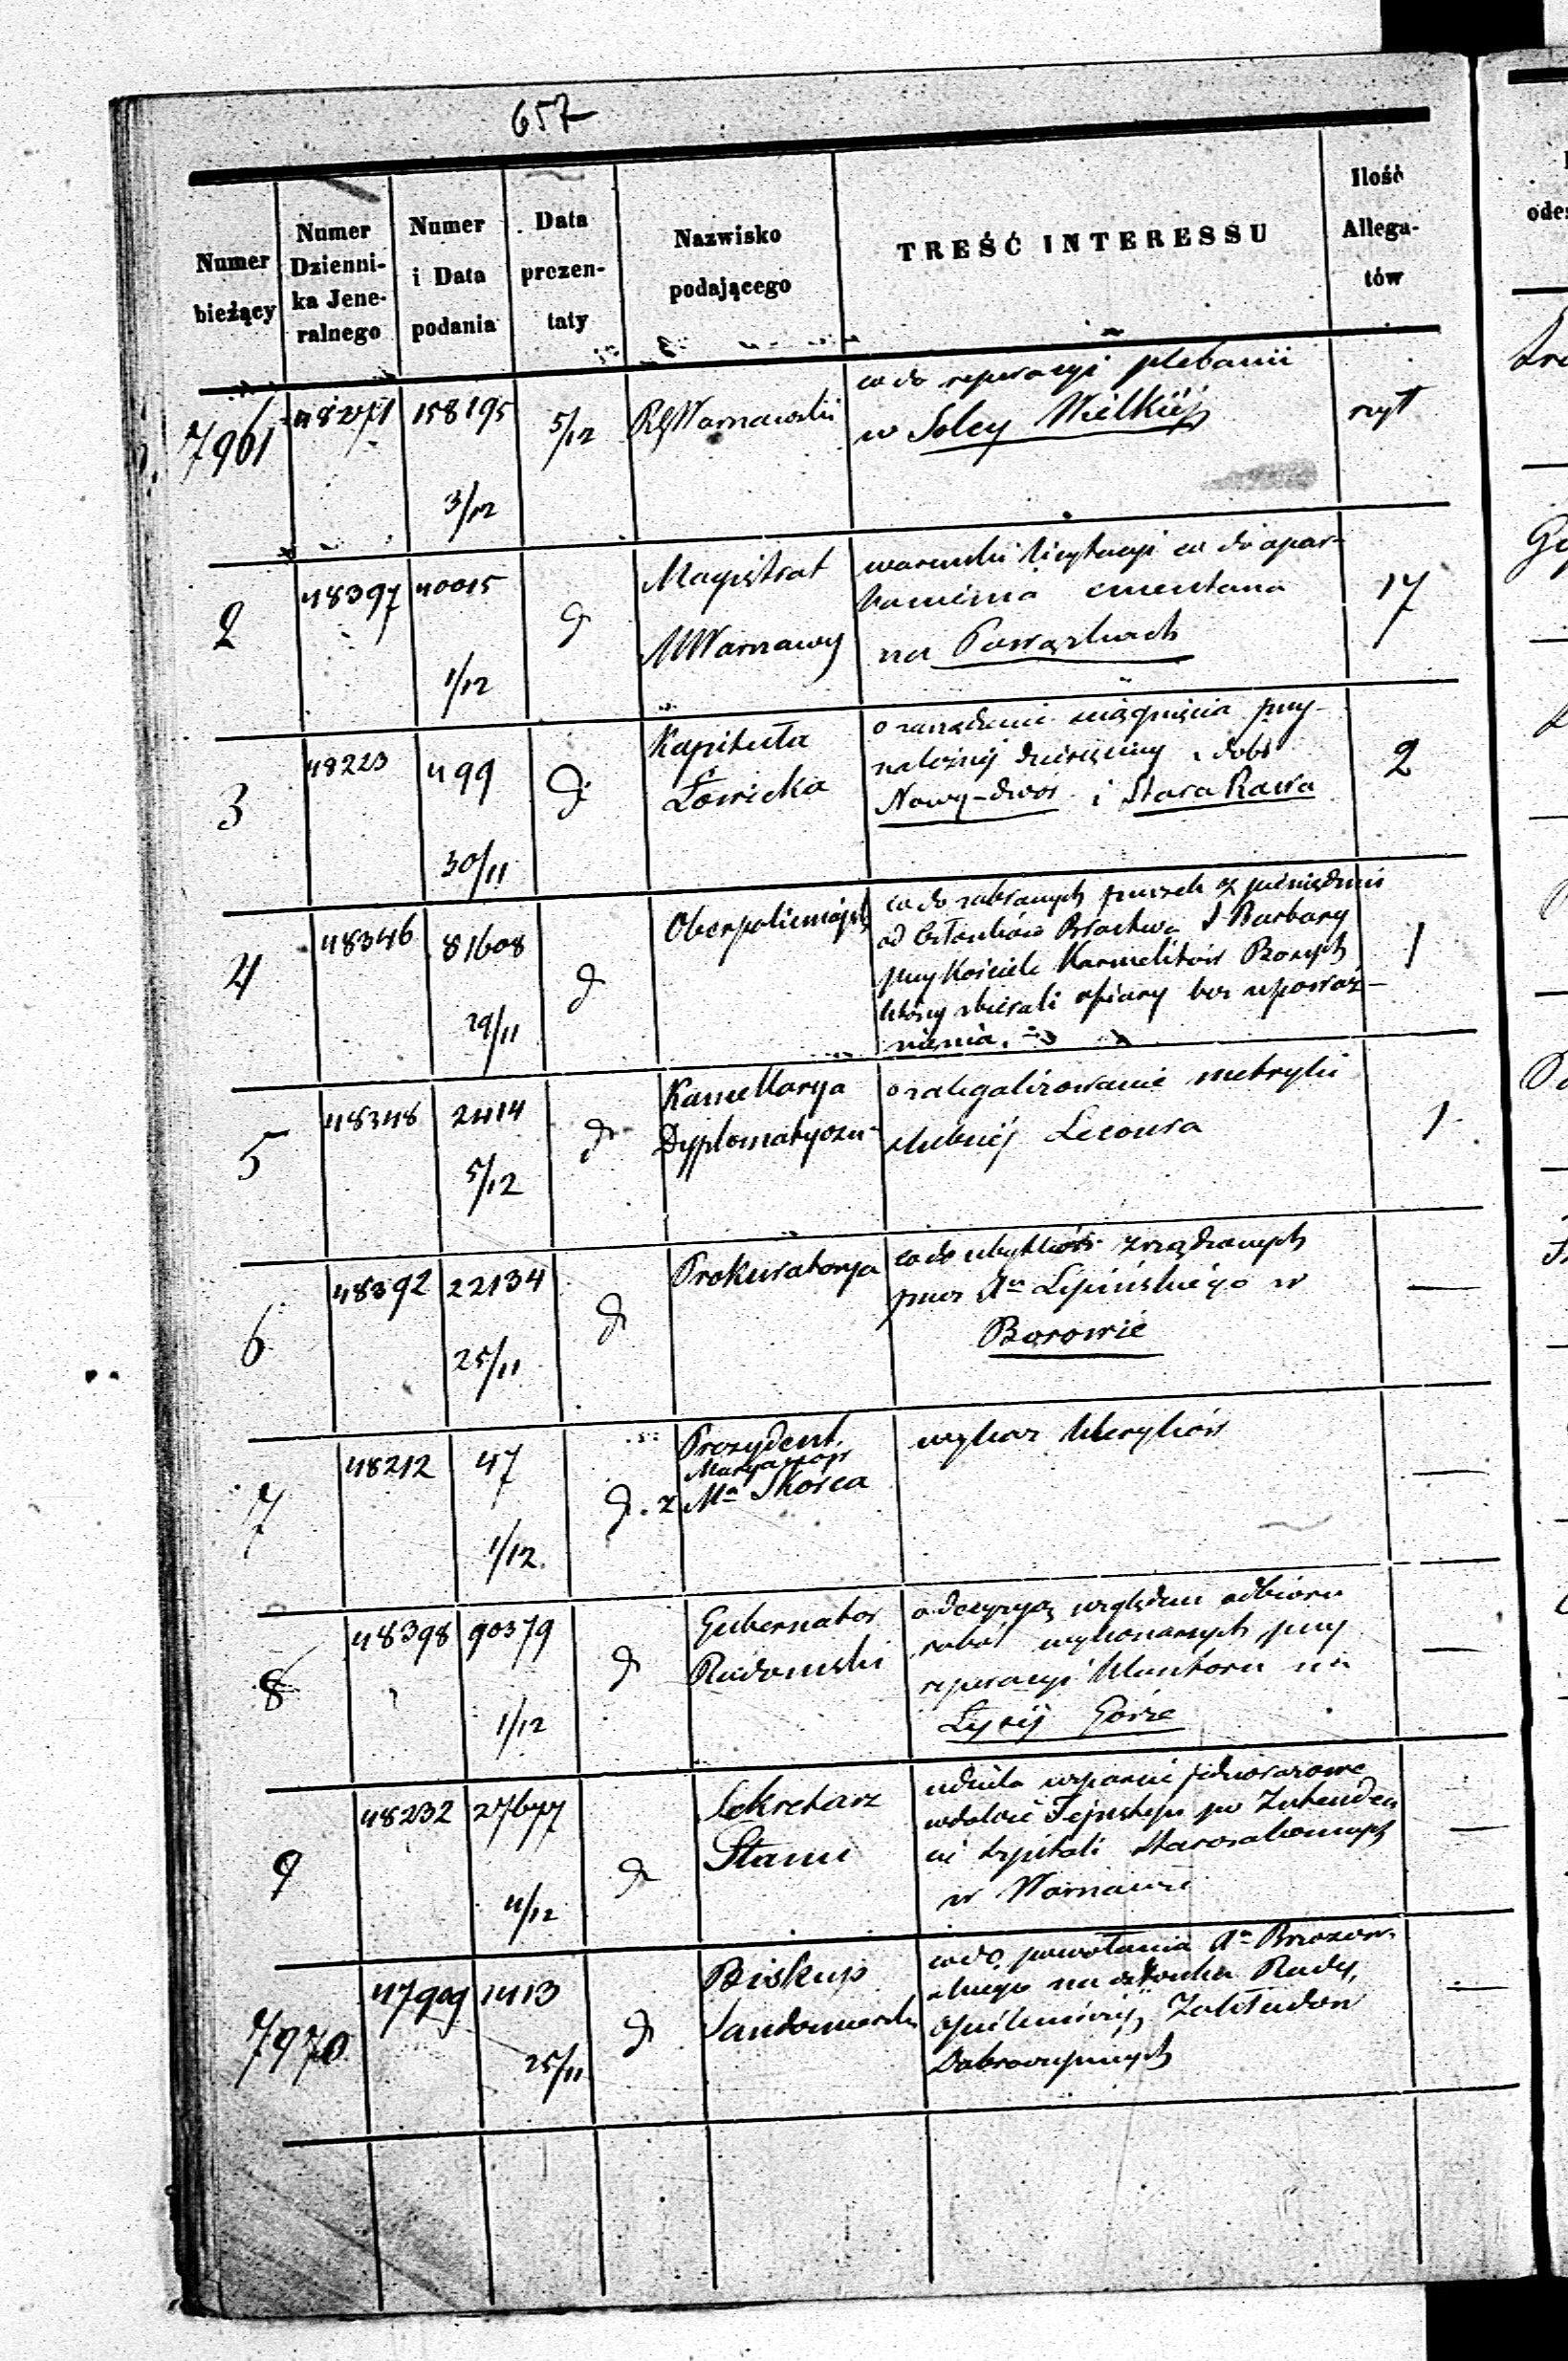 657
Numer bieżący
Numer Dzienni-ka Jene-ralnego
Numer i Data podania
Data prezen-taty
Nazwisko podającego
TREŚĆ INTERESSU
Ilość Allega-tów
7961 48271 158195 3/12 5/12 RGWarszawski
co do reperacyi plebanii
w Soley Wielkiéj
ryt
2 48397 40015 1/12 d
Magistrat
MWarszawy
warunki licytacyi co do opar-
kanienia cmentarza
na Powązkach
17
3 48223 499 30/11 d
Kapituła
Łowicka
o zarządzenie ściągnięcia przy-
należnéj dziesięciny z dóbr
Nowy-dwór i Stara Rawa
2
4 48346 81608 29/11 d
Oberpolicmajstr
co do zabranych puszek z pieniędzmi
od Członków Bractwa S Barbary
przy Kościele Karmelitów Bosych
którzy zbierali ofiary bez upoważ-
nienia.
1
5 48348 2414 5/12 d
Kancellarya
Dyplomatyczn
o zalegalizowanie metryki
ślubnéj Lecoura
1
6 48392 22134 25/11 d
Prokuratorya
co do ubytków zrządzonych
przez Xa Lipińskiego w
Borowie
—
7 48212 47 1/12 d. z
Prezydent
Ma Skórca
wykaz Kleryków
—
8 48398 90379 1/12 d
Gubernator
Radomski
o decyzyą względem odbioru
robót wykonanych przy
reperacyi Klasztoru na
Łyséj Górze
—
9 48232 27677 4/12 d
Sekretarz
Stanu
udziela wsparcie jednorazowe
wdowie po Intenden
cie szpitali Starozakonnych
w Warszawie
—
7970 47909 1413 25/11 d
Biskup
Sandomierski
co do powołania Xa Brzozow-
skiego na członka Rady
opiekuńczéj Zakładów
Dobroczynnych
—